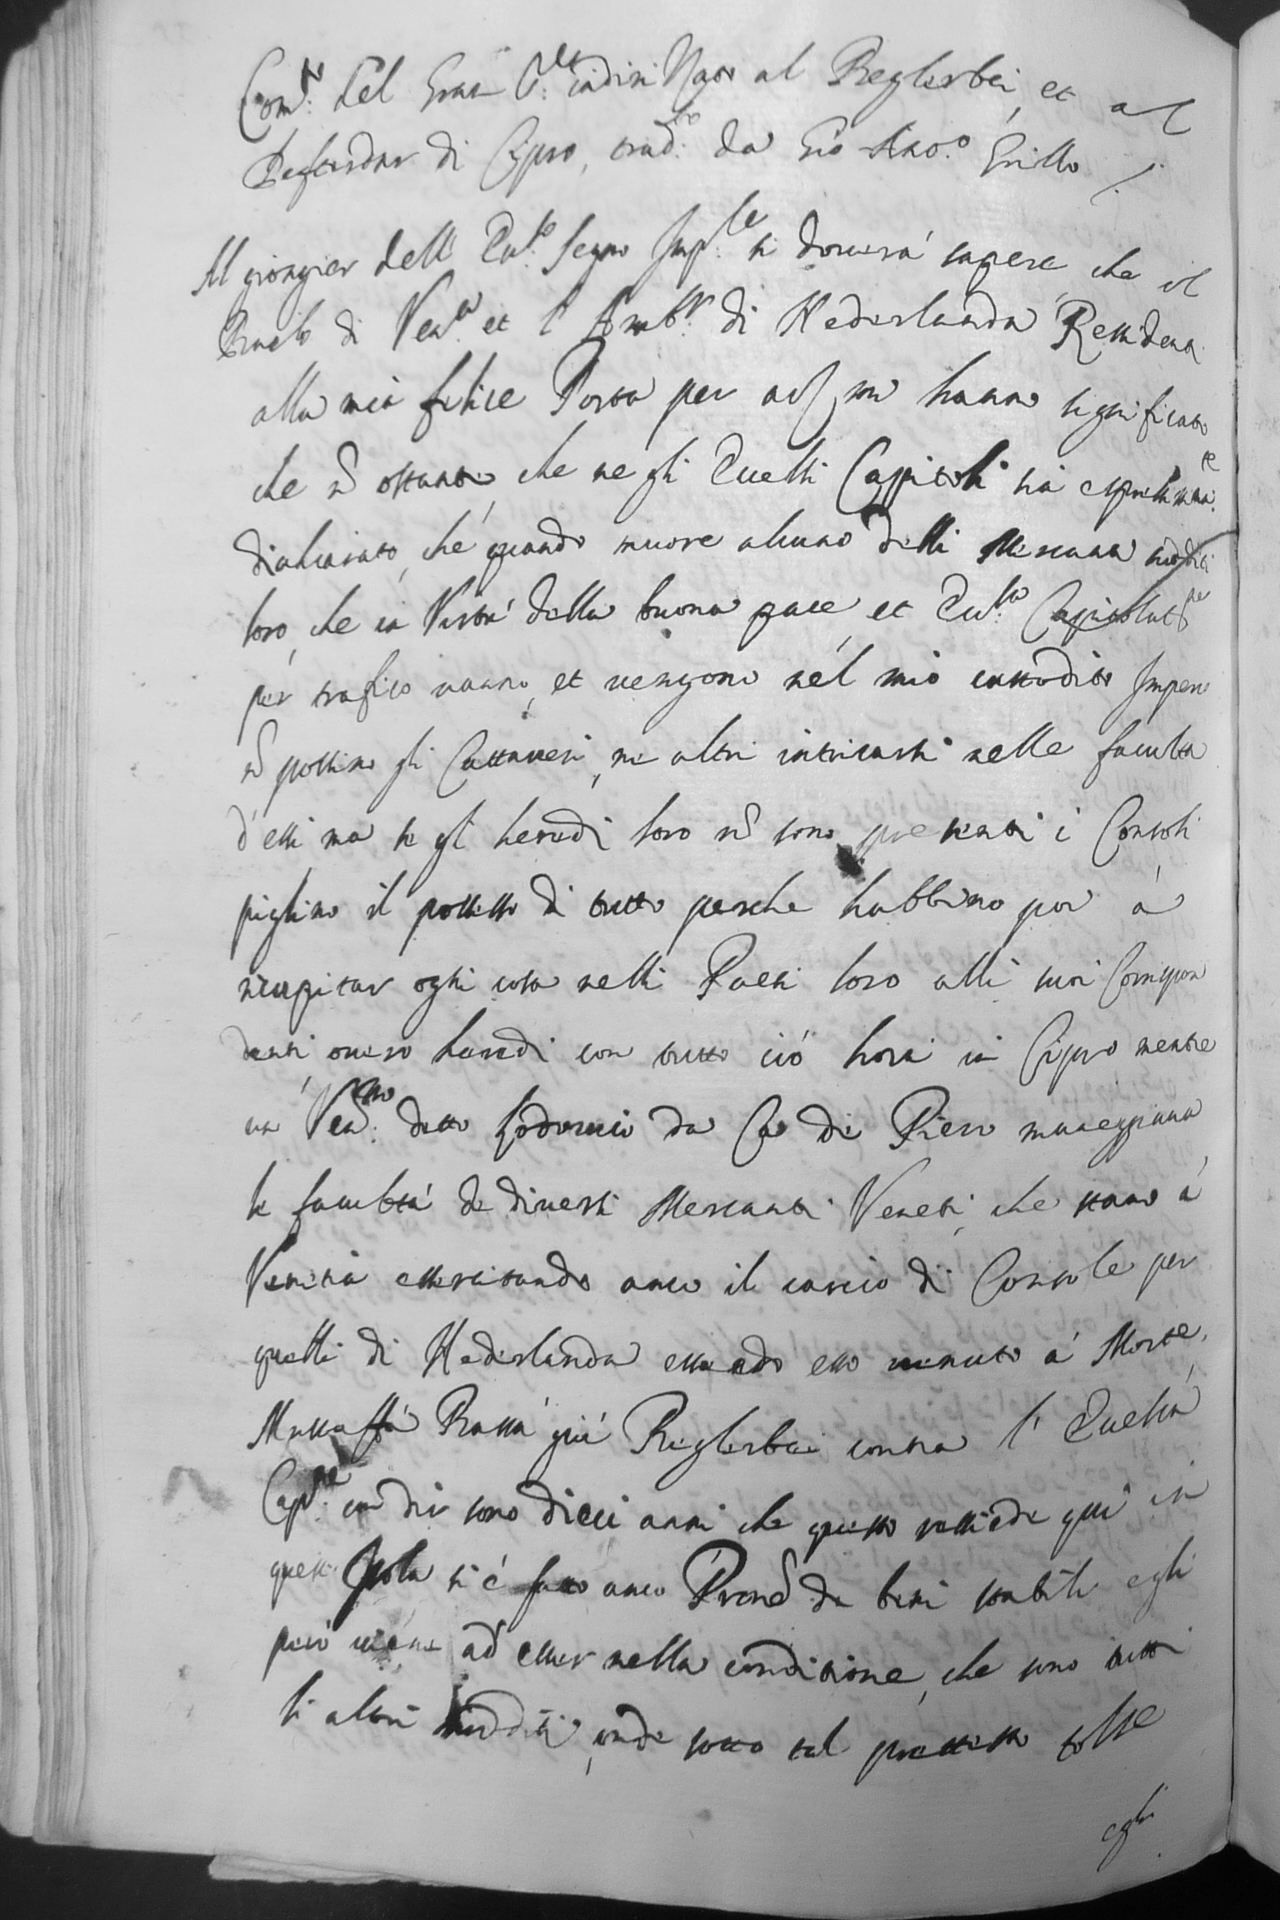 Com.to del Gran S.re indiri Nato al Beglerbei, et al
Defterdar di Cipro, trad.o da Gio Ant.o Grillo
Al gionger dell' Ecc.so Segno Imp.le si doverà sapere che il
Bailo di Ven.a et l'Amb.r di Nederlanda Ressidenti
alla mia felice Porta per arz mi hanno significato
che nõ ostante, che negli Eccelsi Capitoli sia espressam.te
dichiarato, che quando muore alcuno delli Mercanti sudditi
loro, che in Virtù della buona pace, et Ecc.sa Capitolat.ne
per trafico vanno, et vengono nel mio custodito Imperio
nõ possino gli Cattaveri, ne altri intricarsi nelle facultà
d'essi ma se gl' heredi loro nõ sono presenti i Consoli
piglino il possesso di tutto perche habbino poi à
ricapitar ogni cosa nelli Paesi loro alli suoi Corrispon
denti, overo heredi con tutto ciò hora in Cipro mentre
un Ven.no detto Lodovico da Ca di Piero maneggiava
le facultà de diversi Mercanti Veneti, che stano à
Venetia essercitando anco il carico di Console per
quelli di Nederlanda essendo esso venuto à Morte,
Mustaffà Bassà già Beglerbei contra l' Eccelsa
Cap.ne con dir sono dieci anni che questo ressiede qui in
quest' Isola si è fatto anco Pronõ de beni stabili egli
però viene ad esser nella conditione, che sono tutti
li altri sudditi, onde sotto tal pretesto tolse
egli